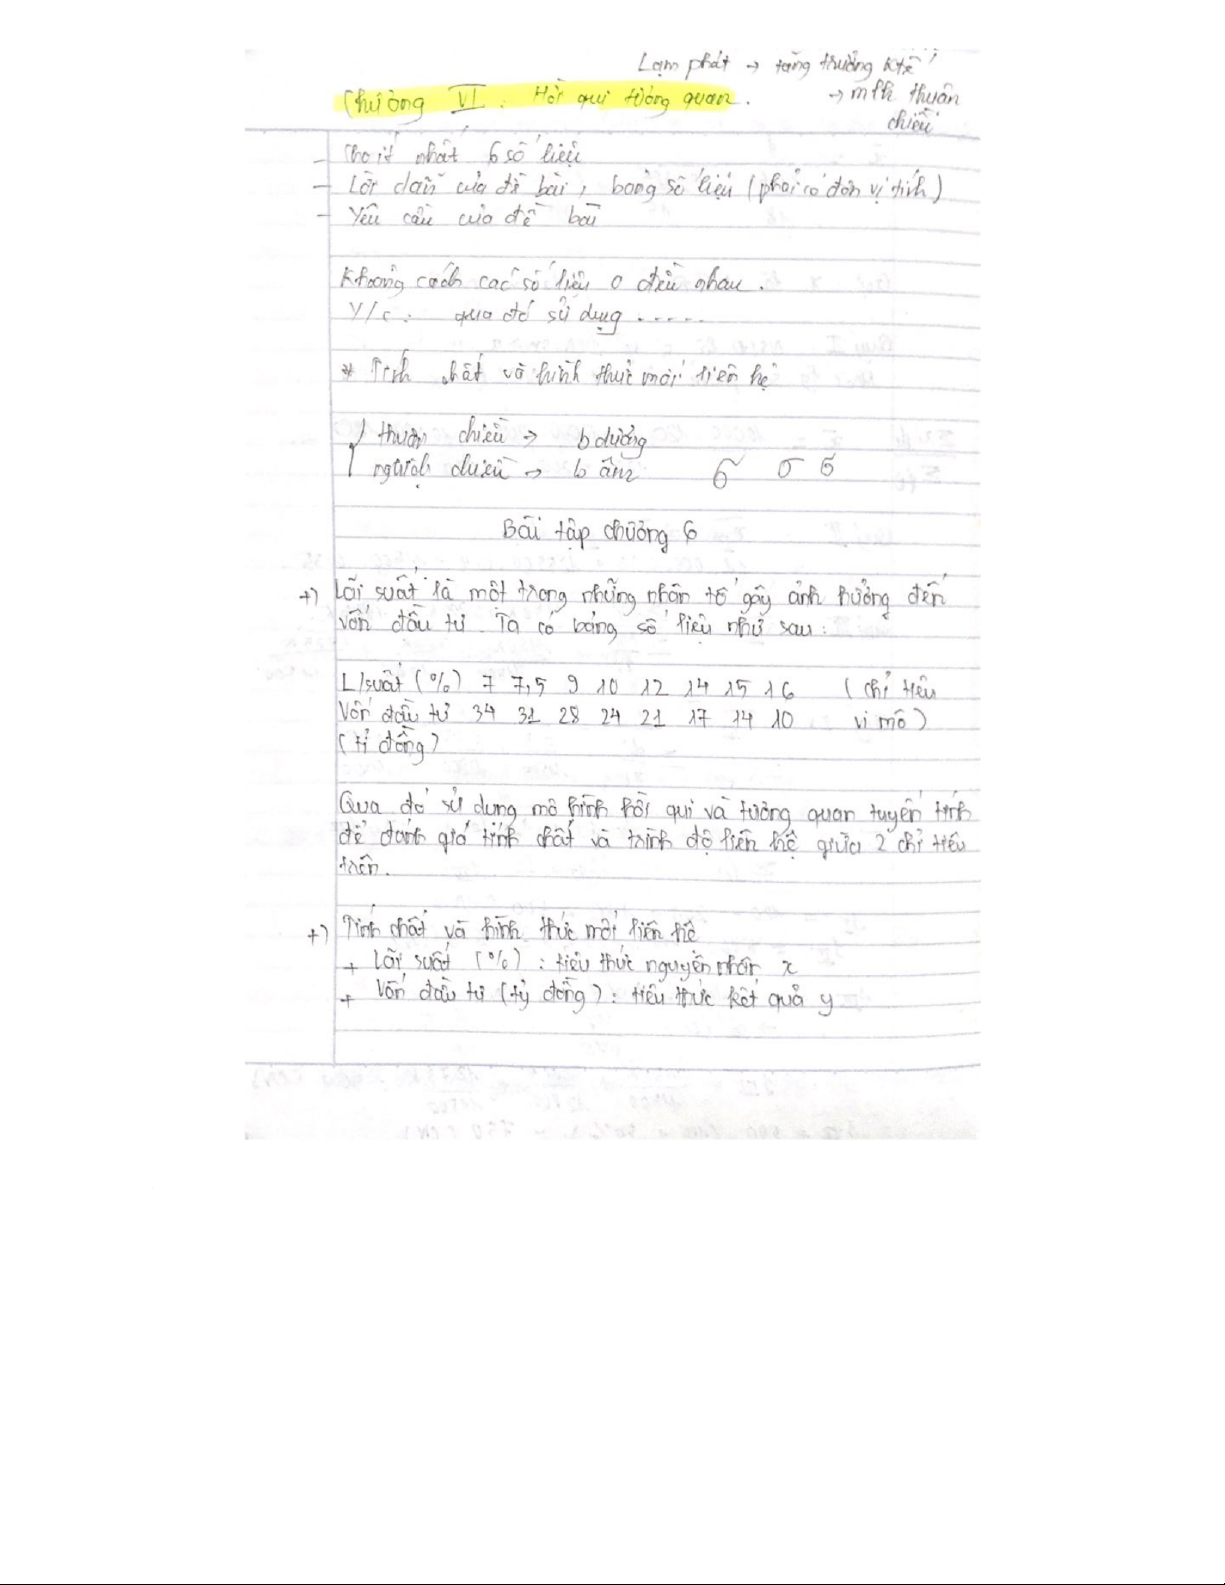 Lạm phát → tăng trưởng ktế
Chương VI : Hồi qui tương quan. → mlh thuận
chiều
- Cho ít nhất 6 số liệu
- Lời dẫn của đề bài, bảng số liệu (phải có đơn vị tính)
- Yêu cầu của đề bài
Khoảng cách các số liệu 0 đều nhau.
Y/c : qua đó sử dụng .....
* Tính chất và hình thức mối liên hệ
thuận chiều → b dương
nghịch chiều → b âm σ σ σ
Bài tập chương 6
+) Lãi suất là một trong những nhân tố gây ảnh hưởng đến
vốn đầu tư. Ta có bảng số liệu như sau :
L/suất (%) 7 7,5 9 10 12 14 15 16 (chỉ tiêu
Vốn đầu tư 34 31 28 24 21 17 14 10 vi mô)
(tỉ đồng)
Qua đó sử dụng mô hình hồi qui và tương quan tuyến tính
để đánh giá tính chất và trình độ liên hệ giữa 2 chỉ tiêu
trên.
+) Tính chất và hình thức mối liên hệ
+ Lãi suất (%) : tiêu thức nguyên nhân x
+ Vốn đầu tư (tỷ đồng) : tiêu thức kết quả y